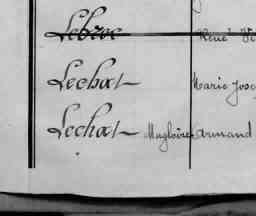 Lebroc René
Lechat Marie Jose
Lechat Magloire Armand